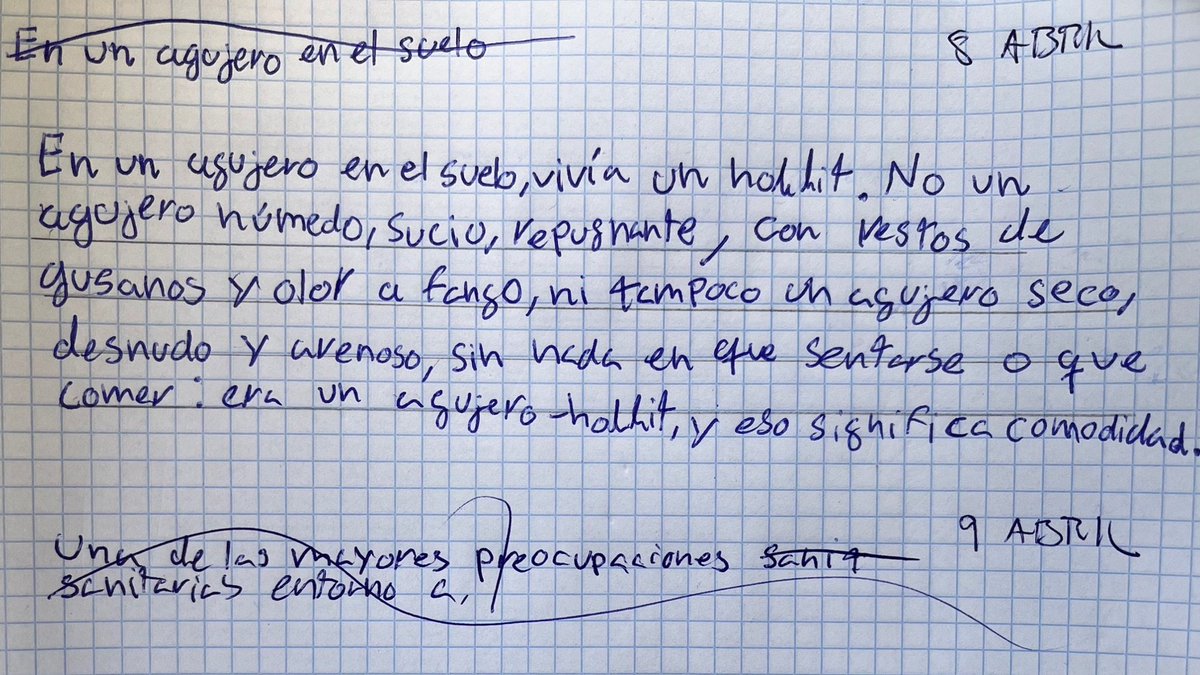 En un agujero en el suelo
8 ABRIL
En un agujero en el suelo, vivía un hobbit. No un
agujero húmedo, sucio, repugnante, con restos de
gusanos y olor a fango, ni tampoco un agujero seco,
desnudo y arenoso, sin nada en que sentarse o que
comer: era un agujero-hobbit, y eso significa comodidad.
9 ABRIL
Una de las mayores preocupaciones sanit
sanitarias entorno a,